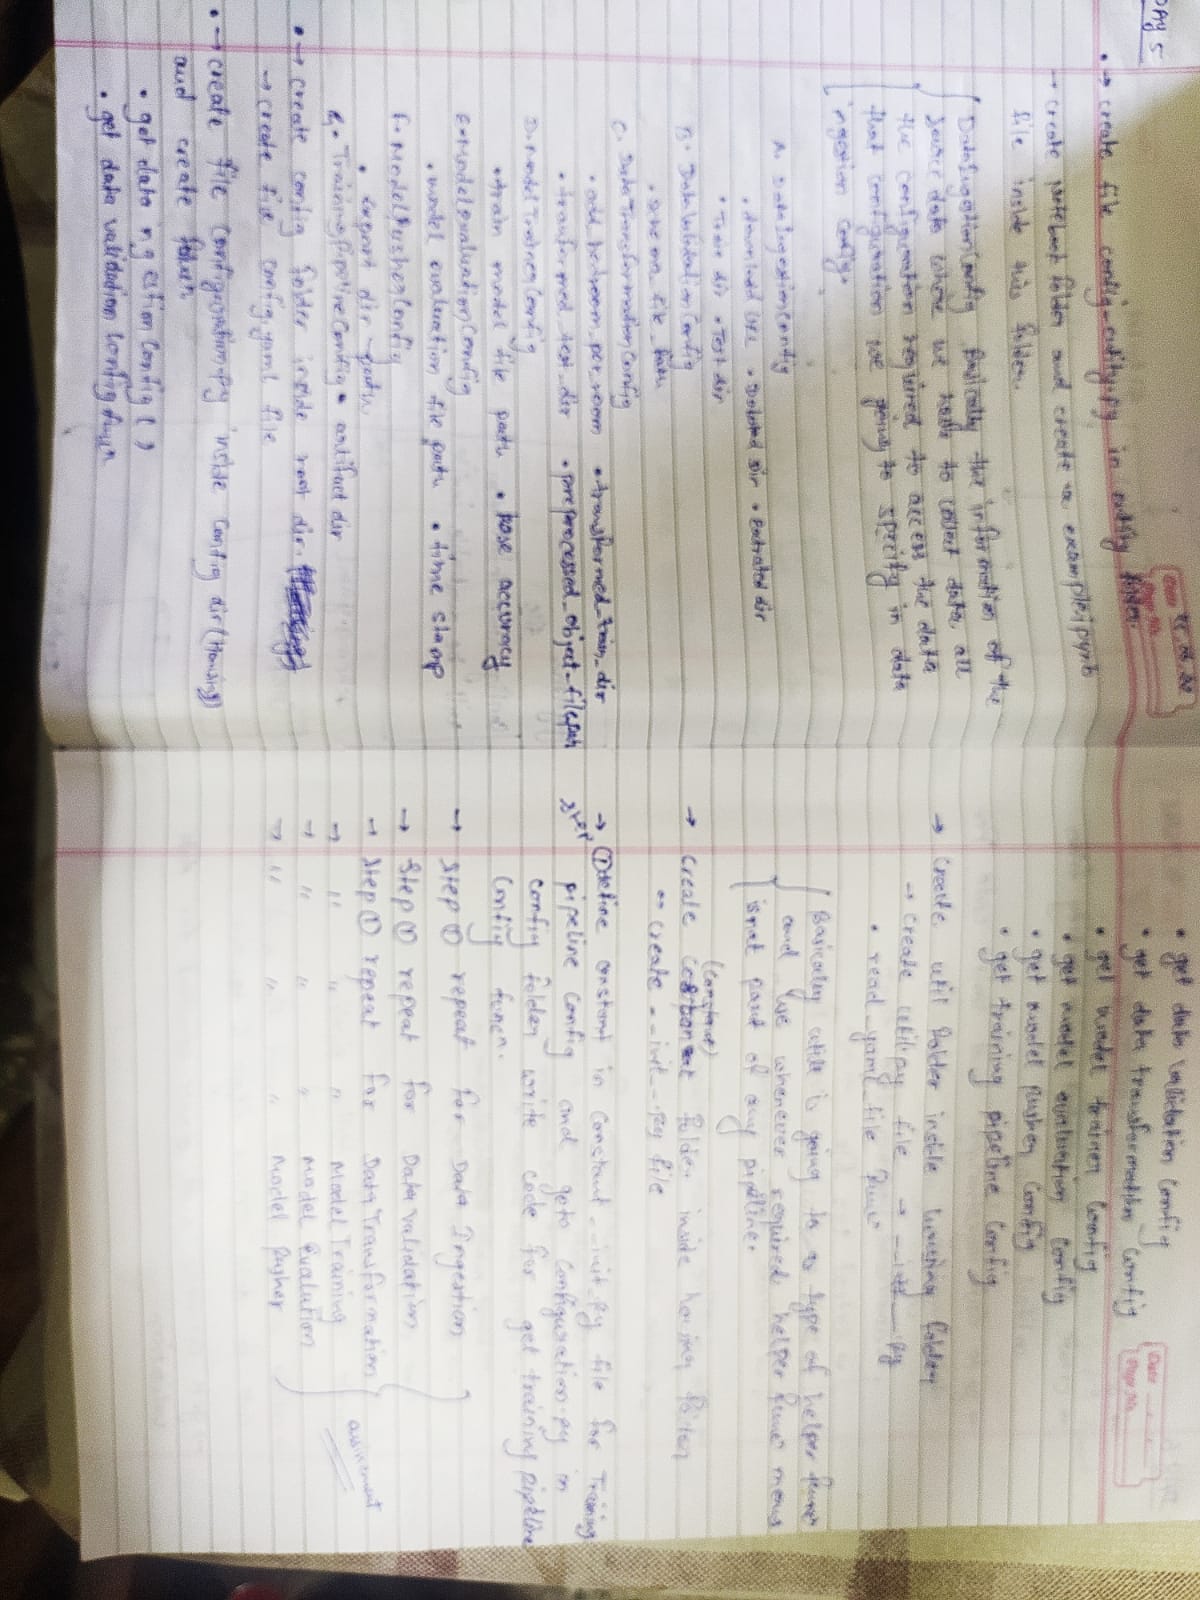 DAY 5
Date
Page No.
• → create file config_entity.py in entity folder.
→ create notebook folder and create a example.ipynb
file inside this folder.
DataIngestionConfig Basically the information of the
source data where we have to collect data, all
the configuration required to access the data
that configuration we going to specify in data
ingestion config.
A. DataIngestionConfig
• download URL • Datated dir • Extrated dir
• Train dir • Test dir
B. DataValidationConfig
• schema file path
C. DataTransformationConfig
• add_bedroom_per_room • transformed_train_dir
• tranformed_test_dir • preprocessed_object_file_path
D. ModelTrainerConfig
• train model file path • base accuracy
E. ModelEvaluationConfig
• model evaluation file path • time stamp
F. ModelPusherConfig
• Export dir path
G. TrainingPipelineConfig • artifact dir
• → create config folder inside root dir.
→ create config.yaml file
• → create file configuration.py inside config dir (Housing)
and create
• get data ingestion Config ( )
• get data validation Config
• get data validation Config
• get data transformation Config
Date
Page No.
• get model trainer Config
• get model evaluation Config
• get model pusher Config
• get training pipeline Config
→ create util folder inside housing folder
→ create util.py file → __init__.py
• read_yaml_file func
Basically utill is going to a type of helper func
and we whenever required helper func means
isnot part of any pipeline.
(constant)
→ create folder inside housing folder
create __init__.py file
→ ① define constant in constant __init_py file for Training
step
pipeline config and goto configuration.py in
config folder write code for get training pipeline
Config funcn.
→ Step ① repeat for Data Ingestion
→ Step ① repeat for Data validation
→ Step ① repeat for Data Transformation
assinment
→ " " " Model Training
→ " " " Model Evalution
→ " " " Model Pusher